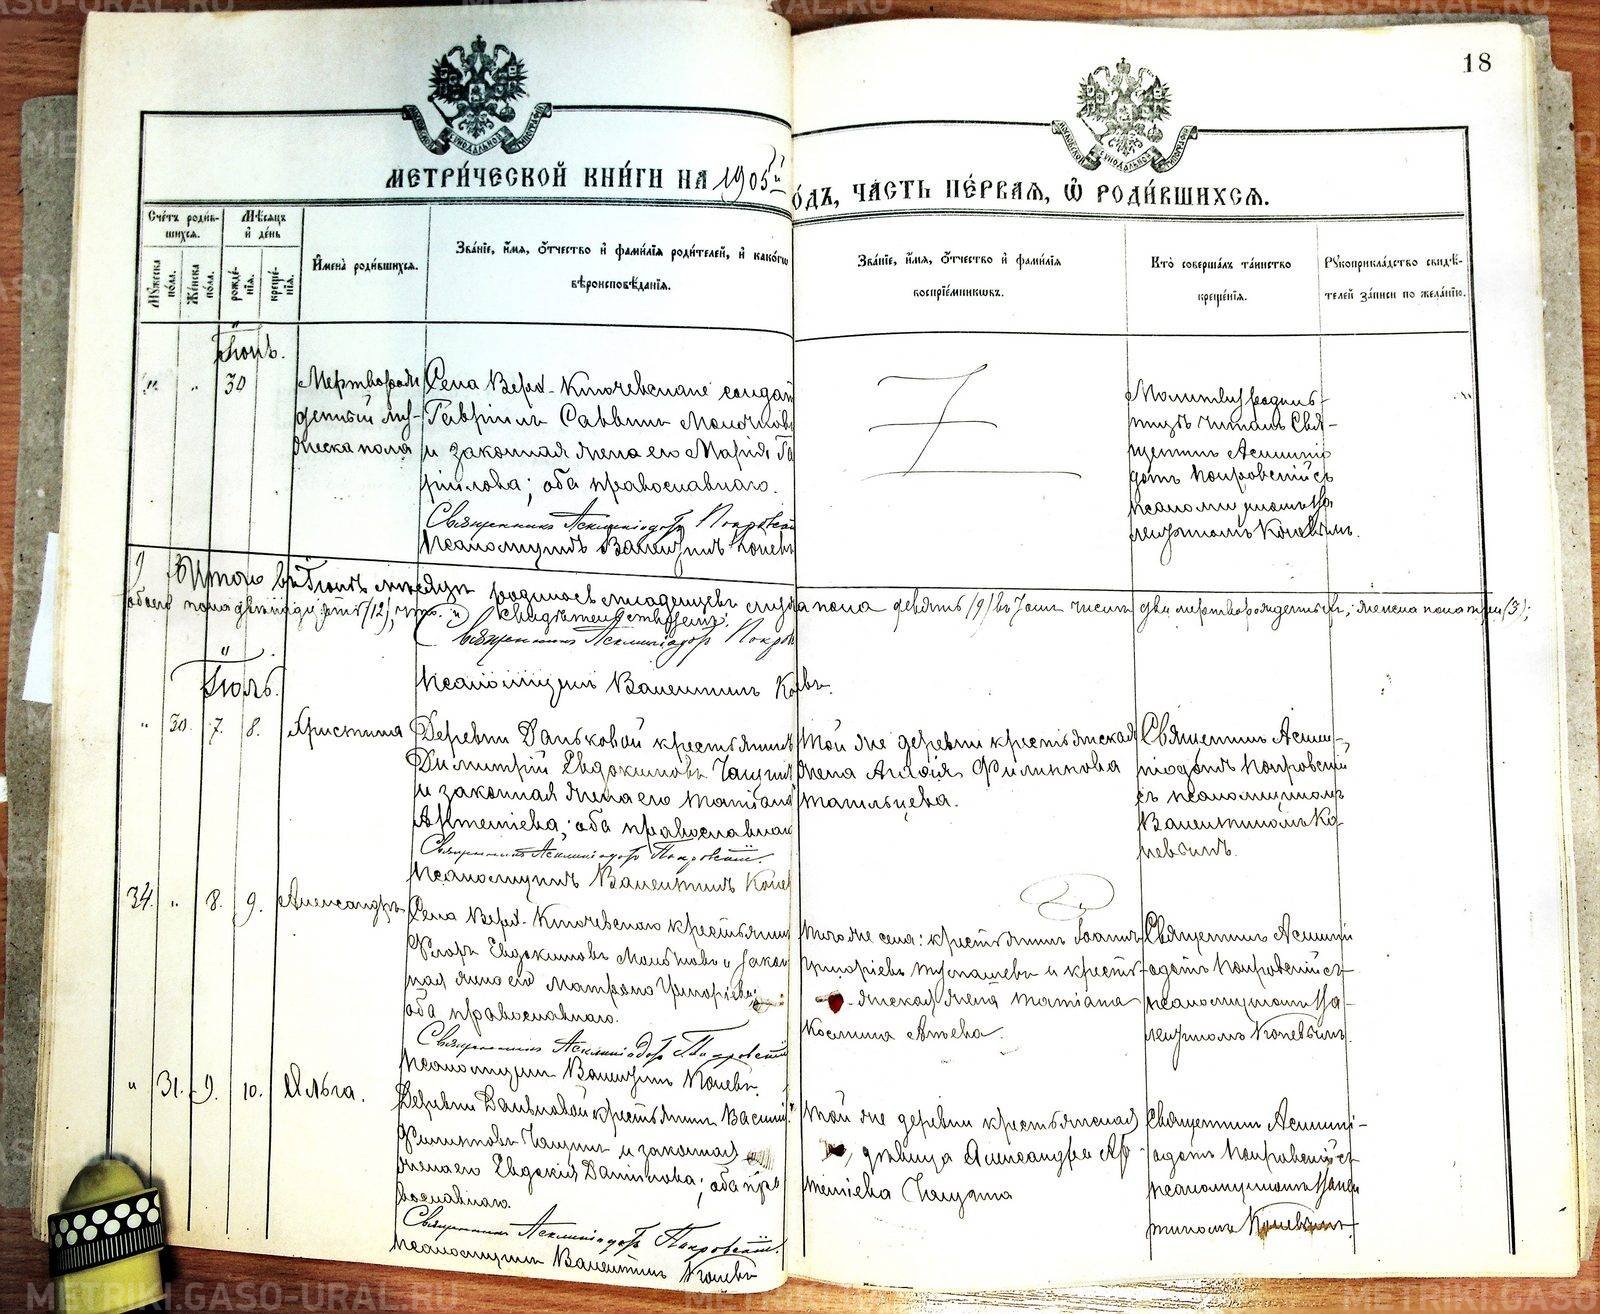 18
МЕТРИ́ЧЕСКОЙ КНИ́ГИ НА 1905й
О́ДЪ, ЧА́СТЬ ПЕ́РВАЯ, Ѽ РОДИ́ВШИХСЯ.
Счéтъ роди́вшихся.
Мꙋжеска по́ла.
Же́нска по́ла.
Мѣ́сяцъ и҆ де́нь
рожде́нїя.
креще́нїя.
И҆мена̀ роди́вшихся.
Зва́нїе, и҆́мя, ѻ҆́тчество и҆ фами́лїя роди́телей, и҆ како́гѡ
вѣроисповѣ́данїя.
Зва́нїе, и҆́мя, ѻ҆́тчество и҆ фами́лїя
воспрїе́мникѡвъ.
Кто̀ соверша́лъ та́инство
креще́нїя.
Рꙋкоприкла́дство свидѣ́телей за́писи по жела́нїю.
Іюнь.
" " 30
Мертворож
денный му-
жеска пола
Села Верх-Ключевскаго солдат
Гавріилъ Саввинъ
и законная жена его Марія Га
ріилова; оба православнаго.
Священникъ Асклипіодотъ Покровскій
Псаломщикъ Валентинъ Коневъ
Молитву родиль-
ницѣ читалъ Свя-
щенникъ Асклипіо
дотъ Покровскій съ
псаломщикомъ Ва
лентиномъ Коневымъ.
Итого въ Іюнѣ мѣсяцѣ родилось младенцевъ мужска пола девять (9) въ томъ числѣ два мертворожденныхъ, женска пола три (3);
обоего пола двѣнадцать (12),
свидѣтельствуемъ:
Священникъ Асклипіодотъ Покров
Псаломщикъ Валентинъ Коневъ.
Іюль.
" 30. 7. 8. Христина
Деревни Даньковой крестьянинъ
Димитрій Евдокимовъ
и законная жена его Татіана
Артеміева; оба православнаго
Священникъ Асклипіодотъ Покровскій.
Псаломщикъ Валентинъ Конев
Той же деревни крестьянская
жена Аглаія Филиппова
Священникъ Аскли-
піодотъ Покровскій
съ псаломщикомъ
Валентиномъ Ко-
невымъ.
34. " 8. 9. Александръ
Села Верх-Ключевскаго крестьянинъ
Флоръ Евдокимовъ и закон
ная жена его Матрона Григоріева
оба православнаго.
Священникъ Асклипіодотъ Покровскій
Псаломщикъ Валентинъ Коневъ
Того же села: крестьянинъ Іоаннъ
Григоріевъ и кресть-
янская жена Татіана
Косьмина
Священникъ Асклипі
одотъ Покровскій съ
псаломщикомъ Ва-
лентиномъ Коневымъ.
" 31. 9. 10. Ольга.
Деревни Даньковой крестьянинъ Василій
Филипповъ и законная
жена его Евдокія Даніилова; оба пра
вославнаго.
Священникъ Асклипіодотъ Покровскій.
Псаломщикъ Валентинъ Коневъ
Той же деревни крестьянская
дѣвица Александра Ар
теміева
Священникъ Асклипі-
одотъ Покровскій съ
псаломщикомъ Вален
тиномъ Коневымъ.
METRIKI.GASO-URAL.RU